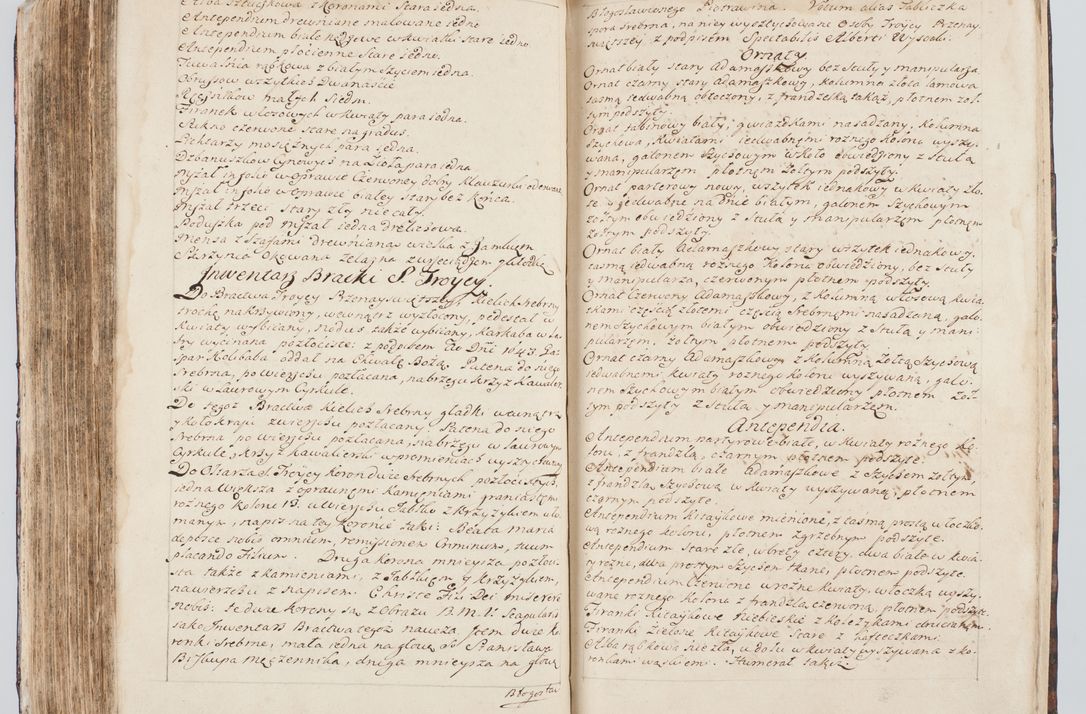 Alba Sztuczkowa z koronami Stara jedna.
Antependium drewniane malowane jedno
Antependium białe w kwiatki stare jedno
Antependium płócienne Stare jedno.
Tuwalnia rąbkowa z białym szyciem jedna.
Obrusow wszytkich Dwanaście
Ręczników małych Siedm.
Firanek w kwiaty para jedna.
Sukno czerwone Stare na gradus.
Lichtarzy mosiężnych para jedna.
Dzbanuszkow Cynowych na Zioła para jedna
Mszał in folio w oprawie Czerwoney dobry, klauzurki oderwane
Mszał in folio w oprawie białey stary bez końca.
Mszał trzeci Stary zły niecały.
Poduszka pod Mszał jedna Drelichowa.
Mensa z Szafami drewniana wielka z Zamkiem
Skrzynia okowana żelazna
Inwentarz Bracki S. Troycy.
Do Bractwa Troycy Przenayświętszey, Kielich Srebrny
trochę nakrzywiony, wewnątrz wyzłocony, pedestał w
kwiaty wybiiany, nodus także wybiiany, karkaba w
fry wycinana pozłocista: z podpisem Ao Dni 1643. Ga-
spar Kolibaba oddał na Chwałę Bożą. Patena do niego
Srebrna, po wierzchu pozłacana, na brzegu krzyż kawaler-
ski w Laurowym Cyrkule.
Do tegoż Bractwa kielich Srebrny gładki wewnątrz
y koło kraju zwierzchu pozłacany Patena do niego
Srebrna po wierzchu pozłacana, na brzegu w Laurowym
Cyrkule, krzyż kawalerski w promieniach wysztychowany
Do Ołtarza S. Troycy Koron dwie Srebrnych pozłocistych,
jedna większa z oprawnemi kamieniami graniastemi
rożnego koloru 13. u wierzchu Jabłko z krzyżykiem uło-
manym, napis na tey koronie taki: Beata maria
deposce nobis omnium, remissionem Criminum, tuum
placando Filium. Druga Korona mnieysza pozłoci-
sta także z kamieniami, z Jabłkiem y krzyżykiem,
na wierzchu z napisem. Christe Fili Dei miserere
nobis: te dwie korony są z obrazu B. M. V. Scapularis
jako Inwentarz Bractwa tegoż naucza. Item dwie ko-
ronki Srebrne, mała jedna na głowę S. Stanisława
Biskupa Męczennika, druga mnieysza na głowę
Błogosław
Błogosławionego Piotrawina. Votum alias Tabliczka
spora Srebrna, na niey wysztychowane Osoby Troycy Przenay-
świętszey, z podpisem Spectabilis Alberti Wysocki.
Ornaty.
Ornat biały stary Adamaszkowy bez Stuły y manipularza
Ornat czarny stary Adamaszkowy, kolumna złota lamowa
tasmą jedwabną obtoczony, z frandzelką takąż, płotnem żoł-
tym podszyty.
Ornat tabinowy biały, gwiazdkami nasadzany, kolumna
Szychowa, kwiatami jedwabnymi rożnego koloru wyszy-
wana, galonem Szychowym w koło obwiedziony z Stułą
y manipularzem płotnem żołtym podszyty.
Ornat parterowy nowy, wszytek jednakowy w kwiaty zło-
te jedwabne na dnie białym, galonem Szychowym
żołtym obwiedziony z Stułą y manipularzem płotnem
żołtym podszyty.
Ornat biały Adamaszkowy stary wszytek jednakowy,
tasmą jedwabną rożnego koloru obwiedziony, bez Stuły
y manipularza, czerwonym płotnem podszyty.
Ornat Czerwony Adamaszkowy, z kolumną włosową kwia-
tkami częścią złotemi częścią srebrnemi nasadzona, galo-
nem Szychowym białym obwiedziony z Stułą y mani-
pularzem, żołtym płotnem podszyty.
Ornat czarny Adamaszkowy z kolumną żołtą Szychową
jedwabnemi kwiaty rożnego koloru wyszywaną, galo-
nem Szychowym białym obwiedziony płotnem żoł-
tym podszyty z Stułą y manipularzem.
Antependia.
Antependium białe, w kwiaty rożnego ko-
loru, z frandzlą, czarnym płotnem podszyte.
Antependium białe Adamaszkowe z Szychem żołtym,
z frandzlą Szychową w kwiaty wyszywaną, płotnem
czarnym podszyte.
Antependium kitaykowe mienione, z tasmą prostą włoczko-
wą rożnego koloru, płotnem zgrzebnym podszyte.
Antependium Stare złe, w bryty cztery, dwa białe w kwia-
ty ryżne, dwa prostym Szychem tkane, płotnem podszyte.
Antependium Czerwone w rożne kwiaty, włoczką wyszy-
wane rożnego koloru z frandzlą czerwoną, płotnem podszyte.
Firanki Kitaykowe Niebieskie z koleczkami
Firanki zielone Kitaykowe Stare z hafteczkami.
Alba rąbkowa nie zła, u dołu w kwiaty wyszywana z ko-
ronkami wąskiemi. Humerał także